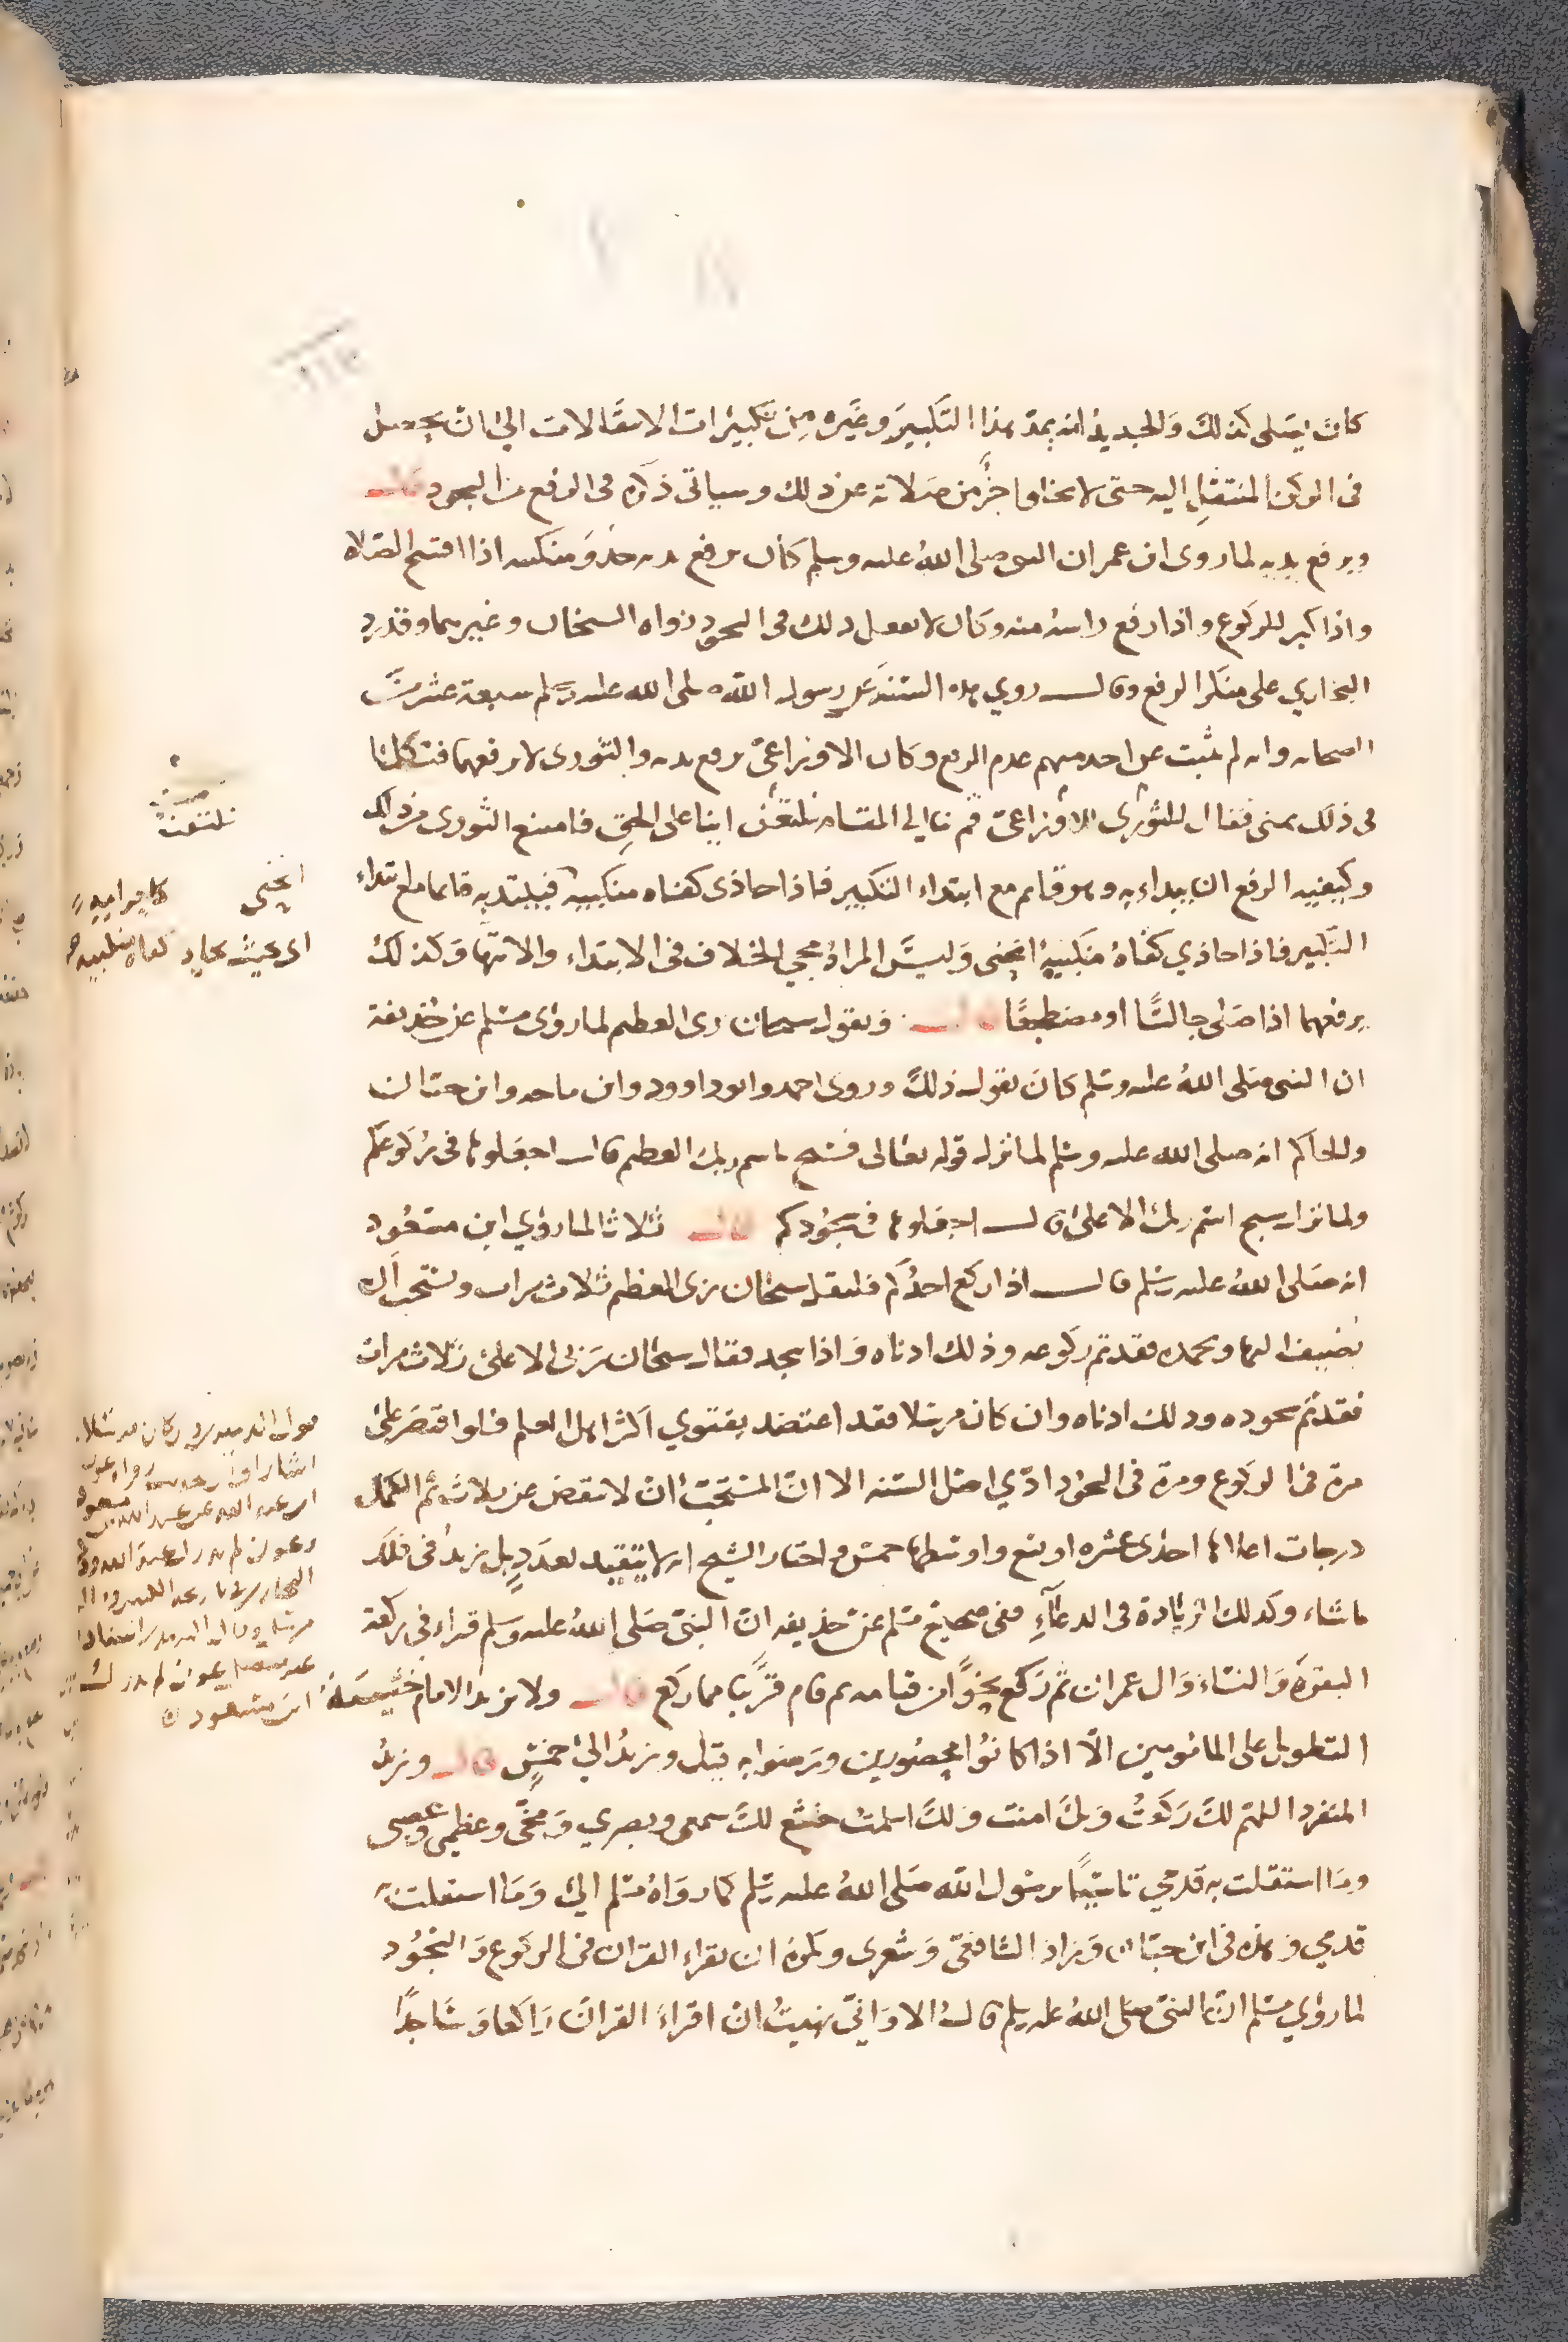 كان يصلي كذلك والجديد انه يمد هذا التكبير وغيره من تكبيرات الانتقالات الى ان يحصل
في الركن المنتقل اليه حتى لا يخلوا جزؤ من صلاته عن ذلك وسياتي ذكره في الرفع من السجود قال
ويرفع يديه لما روى ابن عمر ان النبي صلى الله عليه وسلم كان يرفع يديه حذو منكبيه اذا افتتح الصلاه
واذا كبر للركوع واذا رفع راسه منه وكان لا يفعل ذلك في السجود رواه الشيخان وغيرهما وقد رد
البخاري على منكر الرفع وقال روي هذه السنة عن رسول الله صلى الله عليه وسلم سبعة عشر من
الصحابه وانه لم يثبت عن احد منهم عدم الرفع وكان الاوزاعي يرفع يديه والثوري لا يرفعهما فتكلما
في ذلك بمنى فقال للثوري الاوزاعي قم بنا الى المقام نلتعن اينا على الحق فامتنع الثوري من ذلك
وكيفيه الرفع ان يبداء به وهو قايم مع ابتداء التكبير فاذا حاذى كفاه منكبيه فيبتديه قايما مع ابتداء
التكبير فاذا حاذي كفاه منكبيه انحنى وليس المراد مجي الخلاف في الابتداء والانتها وكذلك
يرفعهما اذا صلى جالسًا او مضطجعًا قال ويقول سبحان ربي العظيم لما روى مسلم عن حذيفة
ان النبي صلى الله عليه وسلم كان يقول ذلك وروى احمد وابو داوود وابن ماجه وابن حبان
والحاكم انه صلى الله عليه وسلم لما نزل قوله تعالى فسبح باسم ربك العظيم قال اجعلوها في ركوعكم
ولما نزل سبح اسم ربك الاعلى قال اجعلوها في سجودكم قال ثلاثا لما روي ابن مسعود
انه صلى الله عليه وسلم قال اذا ركع احدكم فليقل سبحان ربي العظيم ثلاث مرات ويستحب ان
يضيف اليها وبحمده فقد تم ركوعه وذلك ادناه واذا سجد فقال سبحان ربي الاعلى ثلاث مرات
فقد تم سجوده وذلك ادناه وان كان مرسلا فقد اعتضد بفتوي اكثر اهل العلم فلو اقتصر على
مرة في الركوع ومرة في السجود ادي اصل السنه الا ان المستحب ان لا ينقص عن ثلاث ثم للكمال
درجات اعلاها احدى عشره او تسع واوسطها خمس واختار الشيخ انه لا يتقيد بعدد بل يزيد في ذلك
ما شاء وكذلك الزيادة في الدعاء ففي صحيح مسلم عن حذيفه ان النبي صلى الله عليه وسلم قراء في ركعة
البقرة والنساء وال عمران ثم ركع نحوًا من قيامه ثم قام قريبا مما ركع قال ولا يزيد الامام خشية
التطويل على المامومين الا اذا كانوا محصورين ورضوا به قيل ويزيد الى خمس قال ويزيد
المنفرد اللهم لك ركعت وبك امنت ولك اسلمت خشع لك سمعي وبصري ومخي وعظمي وعصبي
وما استقلت به قدمي تاسيًا برسول الله صلى الله عليه وسلم كما رواه مسلم الى وما استقلت به
قدمي وهذه في ابن حبان وزاد الشافعي وشعري ويكره ان يقراء القران في الركوع والسجود
لما روي مسلم ان النبي صلى الله عليه وسلم قال الا واني نهيت ان اقراء القران راكعا وساجدًا
نلتعن
انحنى
اى بحيث يحاذي كفاه منكبيه